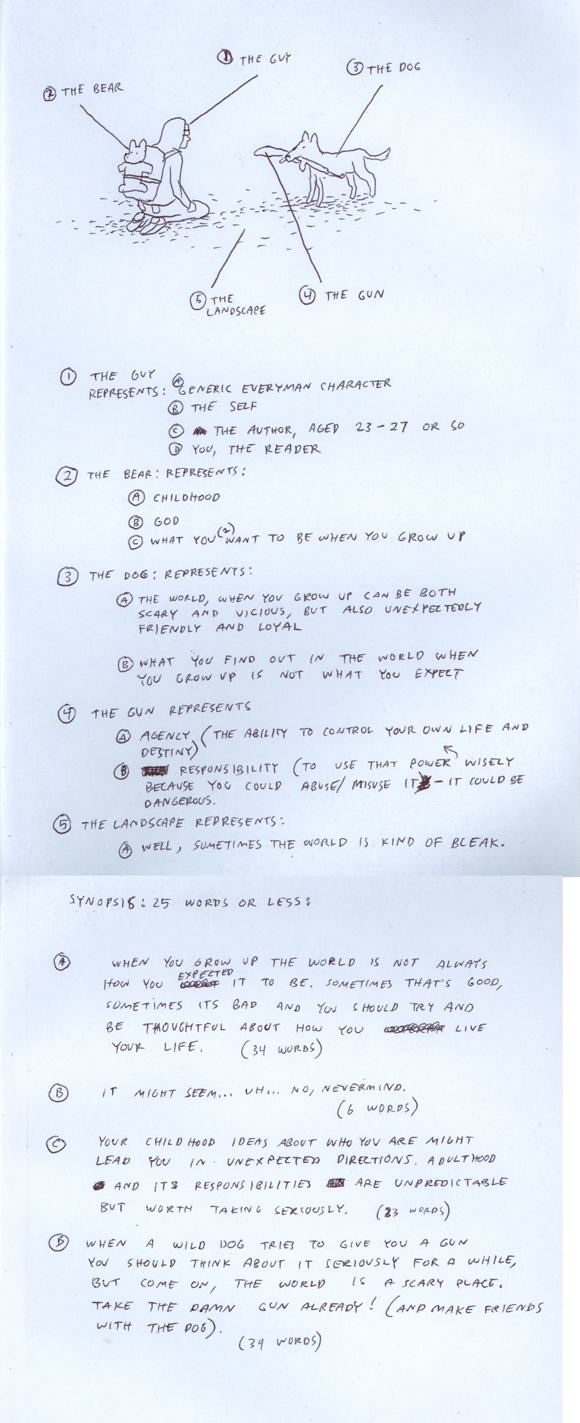 ① THE GUY
③ THE DOG
② THE BEAR
⑤ THE
LANDSCAPE
④ THE GUN
① THE GUY
REPRESENTS: Ⓐ GENERIC EVERYMAN CHARACTER
Ⓑ THE SELF
Ⓒ THE AUTHOR, AGED 23-27 OR SO
Ⓓ YOU, THE READER
② THE BEAR: REPRESENTS:
Ⓐ CHILDHOOD
Ⓑ GOD
Ⓒ WHAT YOU (2) WANT TO BE WHEN YOU GROW UP
③ THE DOG: REPRESENTS:
Ⓐ THE WORLD, WHEN YOU GROW UP CAN BE BOTH
SCARY AND VICIOUS, BUT ALSO UNEXPECTEDLY
FRIENDLY AND LOYAL
Ⓑ WHAT YOU FIND OUT IN THE WORLD WHEN
YOU GROW UP IS NOT WHAT YOU EXPECT
④ THE GUN REPRESENTS
Ⓐ AGENCY (THE ABILITY TO CONTROL YOUR OWN LIFE AND
DESTINY)
Ⓑ RESPONSIBILITY (TO USE THAT POWER WISELY
BECAUSE YOU COULD ABUSE/MISUSE IT - IT COULD BE
DANGEROUS.
⑤ THE LANDSCAPE REPRESENTS:
Ⓐ WELL, SOMETIMES THE WORLD IS KIND OF BLEAK.
SYNOPSIS: 25 WORDS OR LESS:
Ⓐ WHEN YOU GROW UP THE WORLD IS NOT ALWAYS
HOW YOU EXPECTED IT TO BE. SOMETIMES THAT'S GOOD,
SOMETIMES ITS BAD AND YOU SHOULD TRY AND
BE THOUGHTFUL ABOUT HOW YOU LIVE
YOUR LIFE. (34 WORDS)
Ⓑ IT MIGHT SEEM... UH... NO, NEVERMIND.
(6 WORDS)
Ⓒ YOUR CHILDHOOD IDEAS ABOUT WHO YOU ARE MIGHT
LEAD YOU IN UNEXPECTED DIRECTIONS. ADULTHOOD
AND ITS RESPONSIBILITIES ARE UNPREDICTABLE
BUT WORTH TAKING SERIOUSLY. (23 WORDS)
Ⓓ WHEN A WILD DOG TRIES TO GIVE YOU A GUN
YOU SHOULD THINK ABOUT IT SERIOUSLY FOR A WHILE,
BUT COME ON, THE WORLD IS A SCARY PLACE.
TAKE THE DAMN GUN ALREADY! (AND MAKE FRIENDS
WITH THE DOG).
(34 WORDS)